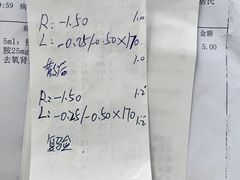 :59 病
居民
金额
5ml:
5.00
胺25mg
去氧肾
R:-1.50 1.0
L:-0.25/-0.50×170 1.0
散后
R:-1.50 1.2
L:-0.25/-0.50×170 1.2
复验